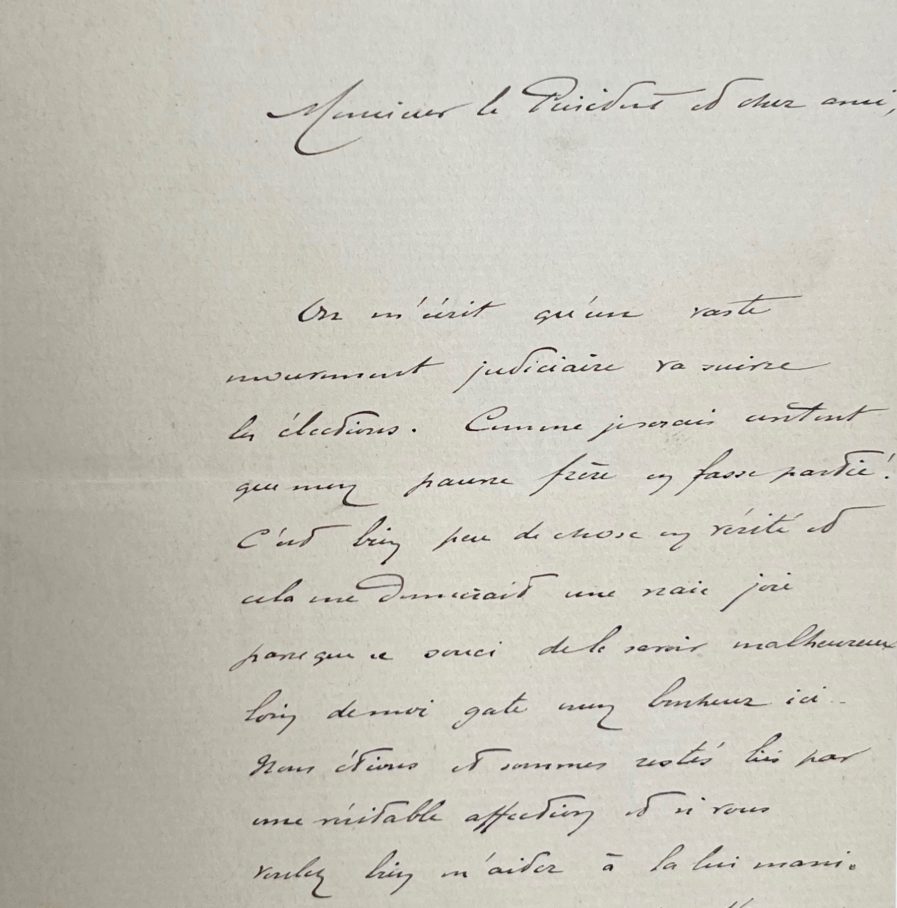 Monsieur le Président et cher ami,
On m'écrit qu'un vaste
mouvement judiciaire va suivre
les élections. Comme je serais content
que mon pauvre frère en fasse partie!
C'est bien peu de chose en vérité et
cela me donnerait une vraie joie
parce que ce souci de le savoir malheureux
loin de moi gate mon bonheur ici..
Nous étions et sommes restés liés par
une véritable affection et si vous
voulez bien m'aider à la lui mani-